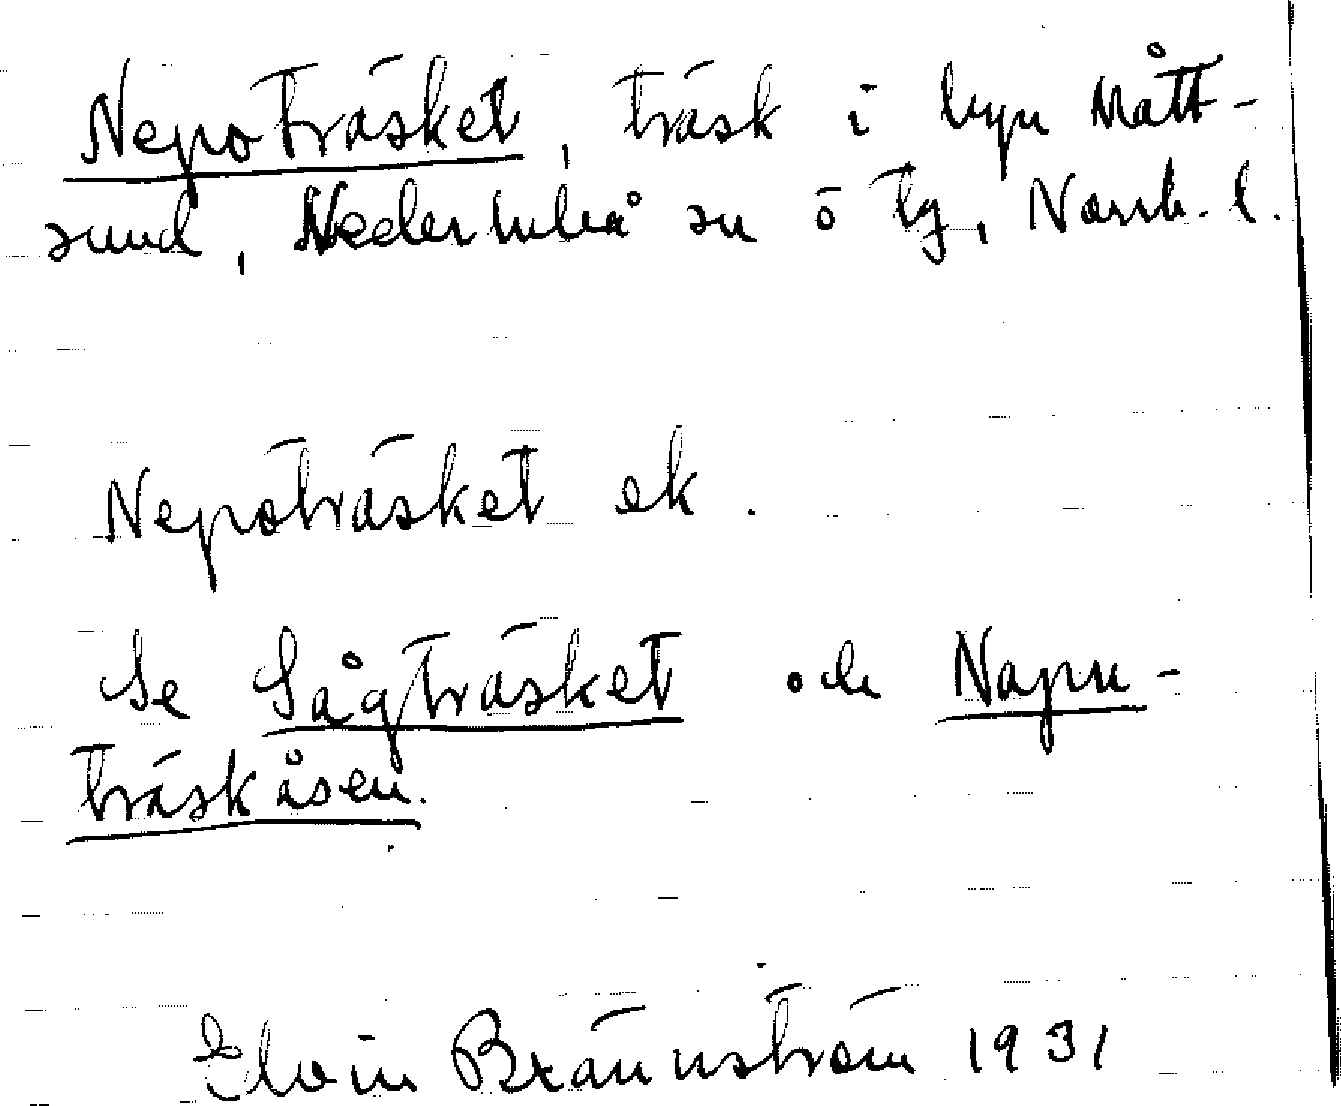 Nepoträsket, träsk i byn Mått-
sund, Nederluleå sn ö tg, Norrb. l.
Nepoträsket ek.
Se Sågträsket och Napu-
träskåsen.
Elvin Brännström 1931